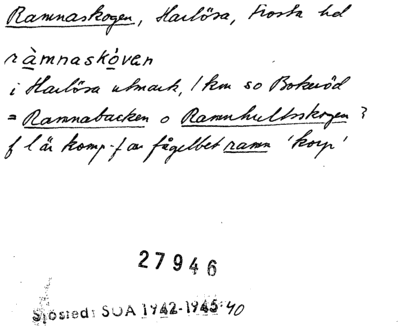 Ramnaskogen, Harlösa, Frosta hd
ràmnaskóven
i Harlösa utmark, 1 km so Bokeröd
= Ramnabacken o Ramnhultsskogen?
f l är komp-f av fågelbet ramn 'korp'
27946
Sjöstedt SOA 1942-1945:40